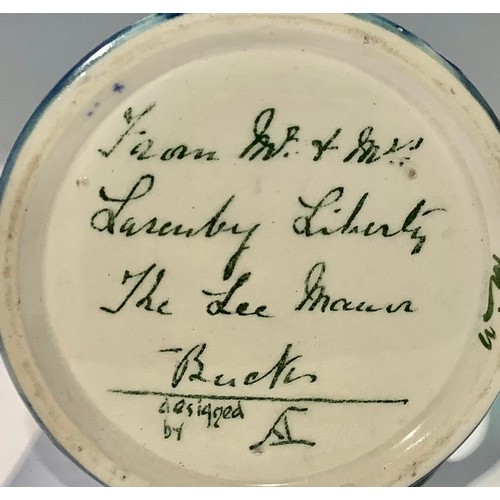 From Mr. & Mrs
Lasenby Liberty
The Lee Manor
Bucks
designed
by